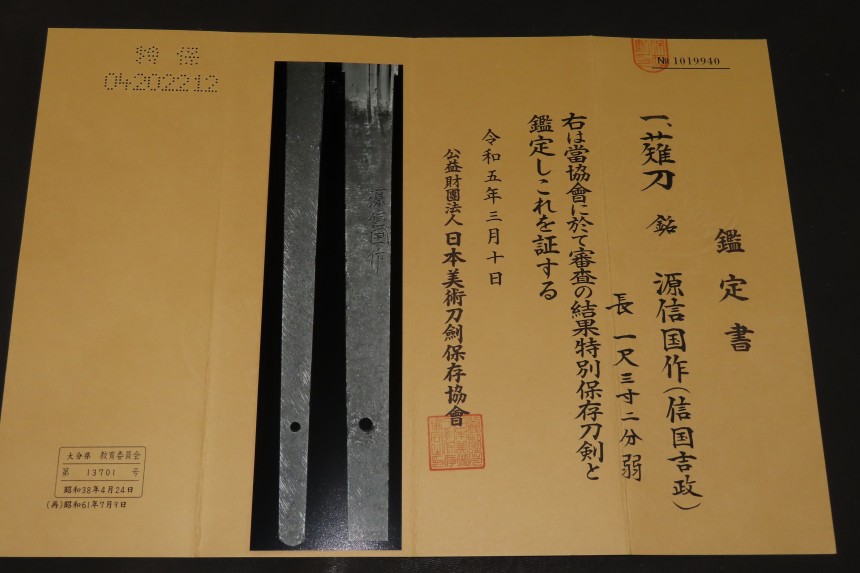 № 1019940
鑑定書
一、薙刀 銘 源信国作(信国吉政)
長 一尺三寸二分弱
右は當協會に於て審査の結果特別保存刀剣と
鑑定しこれを証する
令和五年三月十日
公益財團法人日本美術刀劍保存協會
源信国作
特保
04202212
大分県 教育委員会
第 13701 号
昭和38年4月24日
(再)昭和61年7月9日